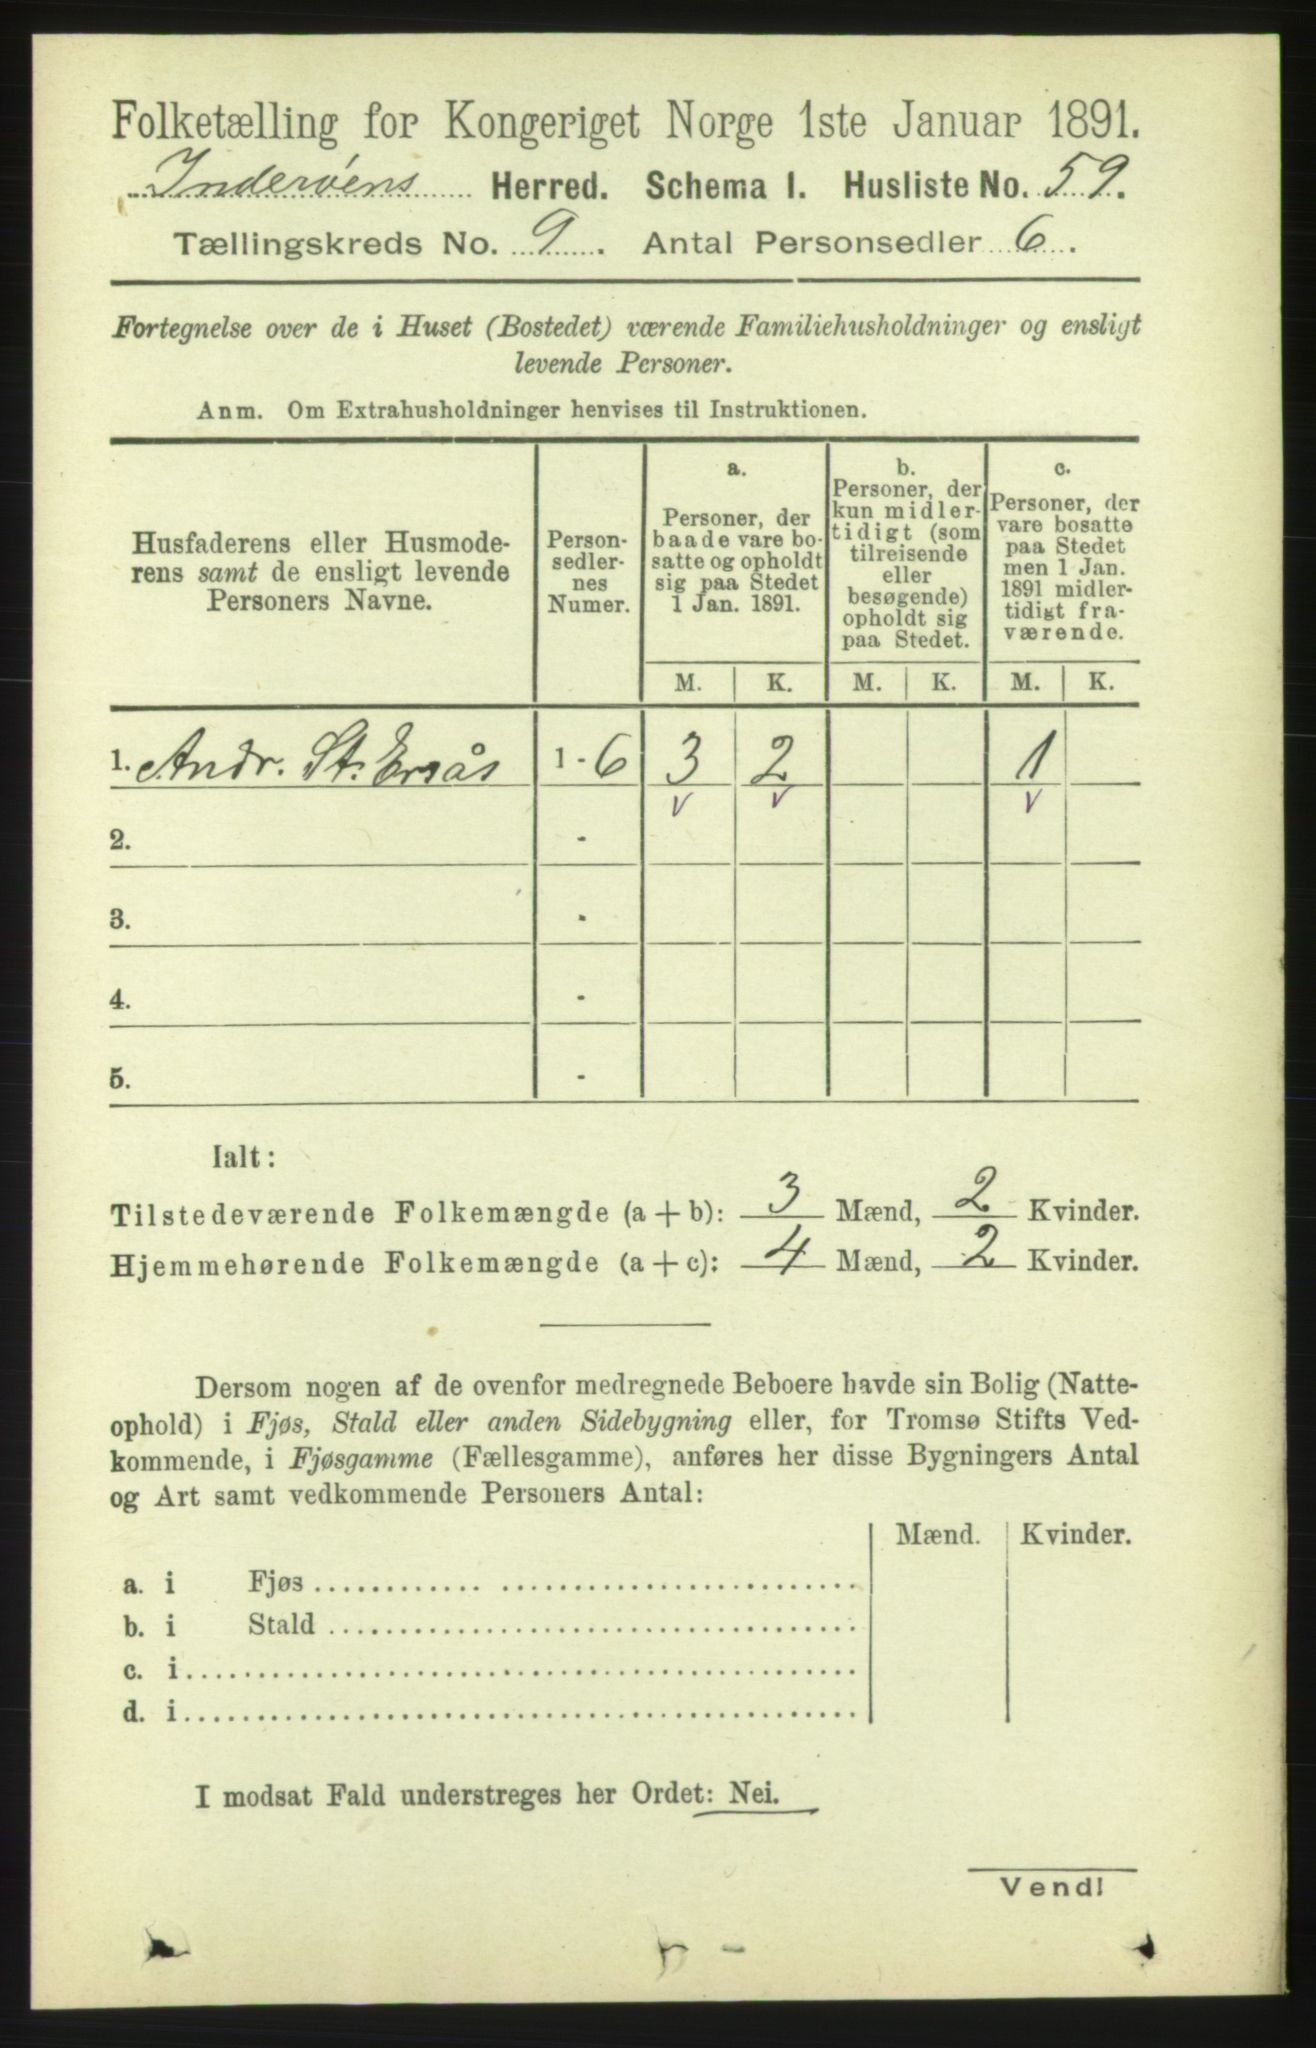 Folketælling for Kongeriget Norge 1ste Januar 1891.
Inderøens Herred. Schema I. Husliste No. 59.
Tællingskreds No. 9. Antal Personsedler 6.
Fortegnelse over de i Huset (Bostedet) værende Familiehusholdninger og ensligt
levende Personer.
Anm. Om Extrahusholdninger henvises til Instruktionen.
Husfaderens eller Husmode-
rens samt de ensligt levende
Personers Navne.
Person-
sedler-
nes
Numer.
a.
Personer, der
baade vare bo-
satte og opholdt
sig paa Stedet
1 Jan. 1891.
b.
Personer, der
kun midler-
tidigt (som
tilreisende
eller
besøgende)
opholdt sig
paa Stedet.
c.
Personer, der
vare bosatte
paa Stedet
men 1 Jan.
1891 midler-
tidigt fra-
værende.
M. K. M. K. M. K.
1. Andr. St. Ersås 1 - 6 3 2 1
v v v
2. -
3. -
4. -
5. -
Ialt:
Tilstedeværende Folkemængde (a + b): 3 Mænd, 2 Kvinder.
Hjemmehørende Folkemængde (a + c): 4 Mænd, 2 Kvinder.
Dersom nogen af de ovenfor medregnede Beboere havde sin Bolig (Natte-
ophold) i Fjøs, Stald eller anden Sidebygning eller, for Tromsø Stifts Ved-
kommende, i Fjøsgamme (Fællesgamme), anføres her disse Bygningers Antal
og Art samt vedkommende Personers Antal:
Mænd. Kvinder.
a. i Fjøs
b. i Stald
c. i
d. i
I modsat Fald understreges her Ordet: Nei.
Vend!